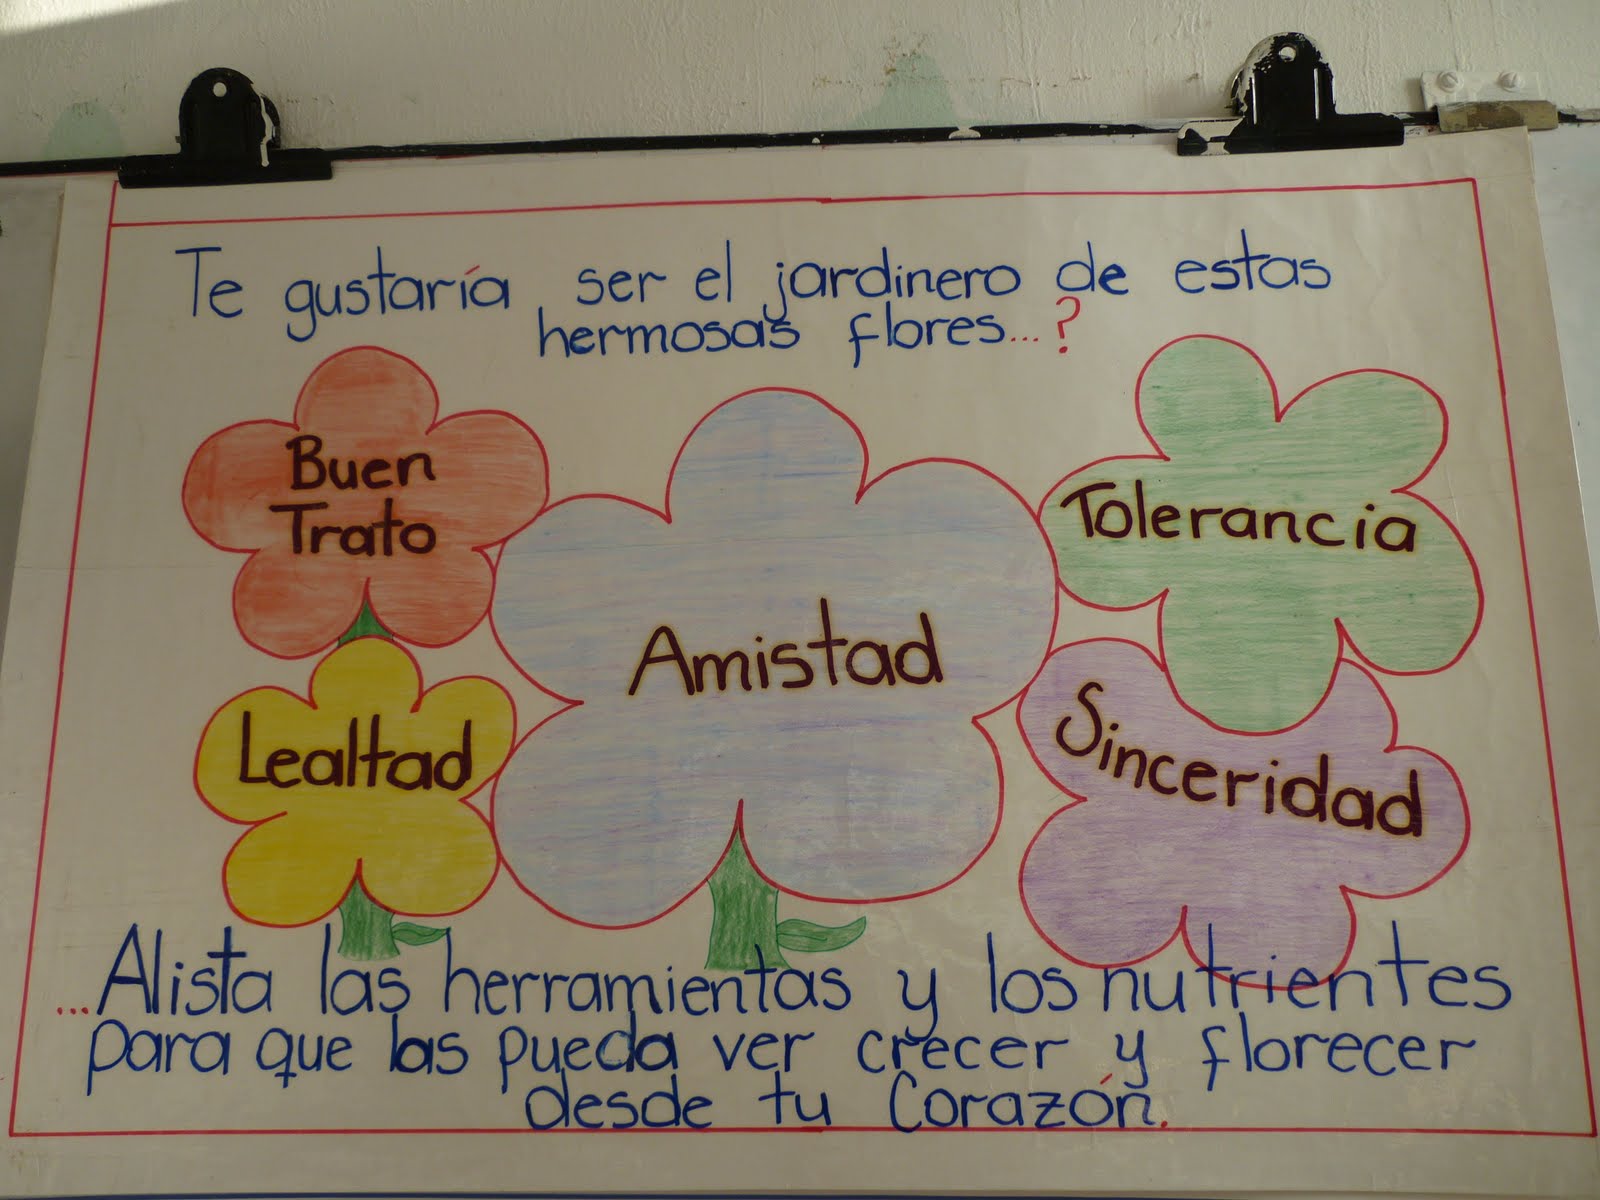 Te gustaría ser el jardinero de estas
hermosas flores...?
Buen
Trato
Tolerancia
Amistad
Lealtad
Sinceridad
...Alista las herramientas y los nutrientes
para que las pueda ver crecer y florecer
desde tu Corazón.